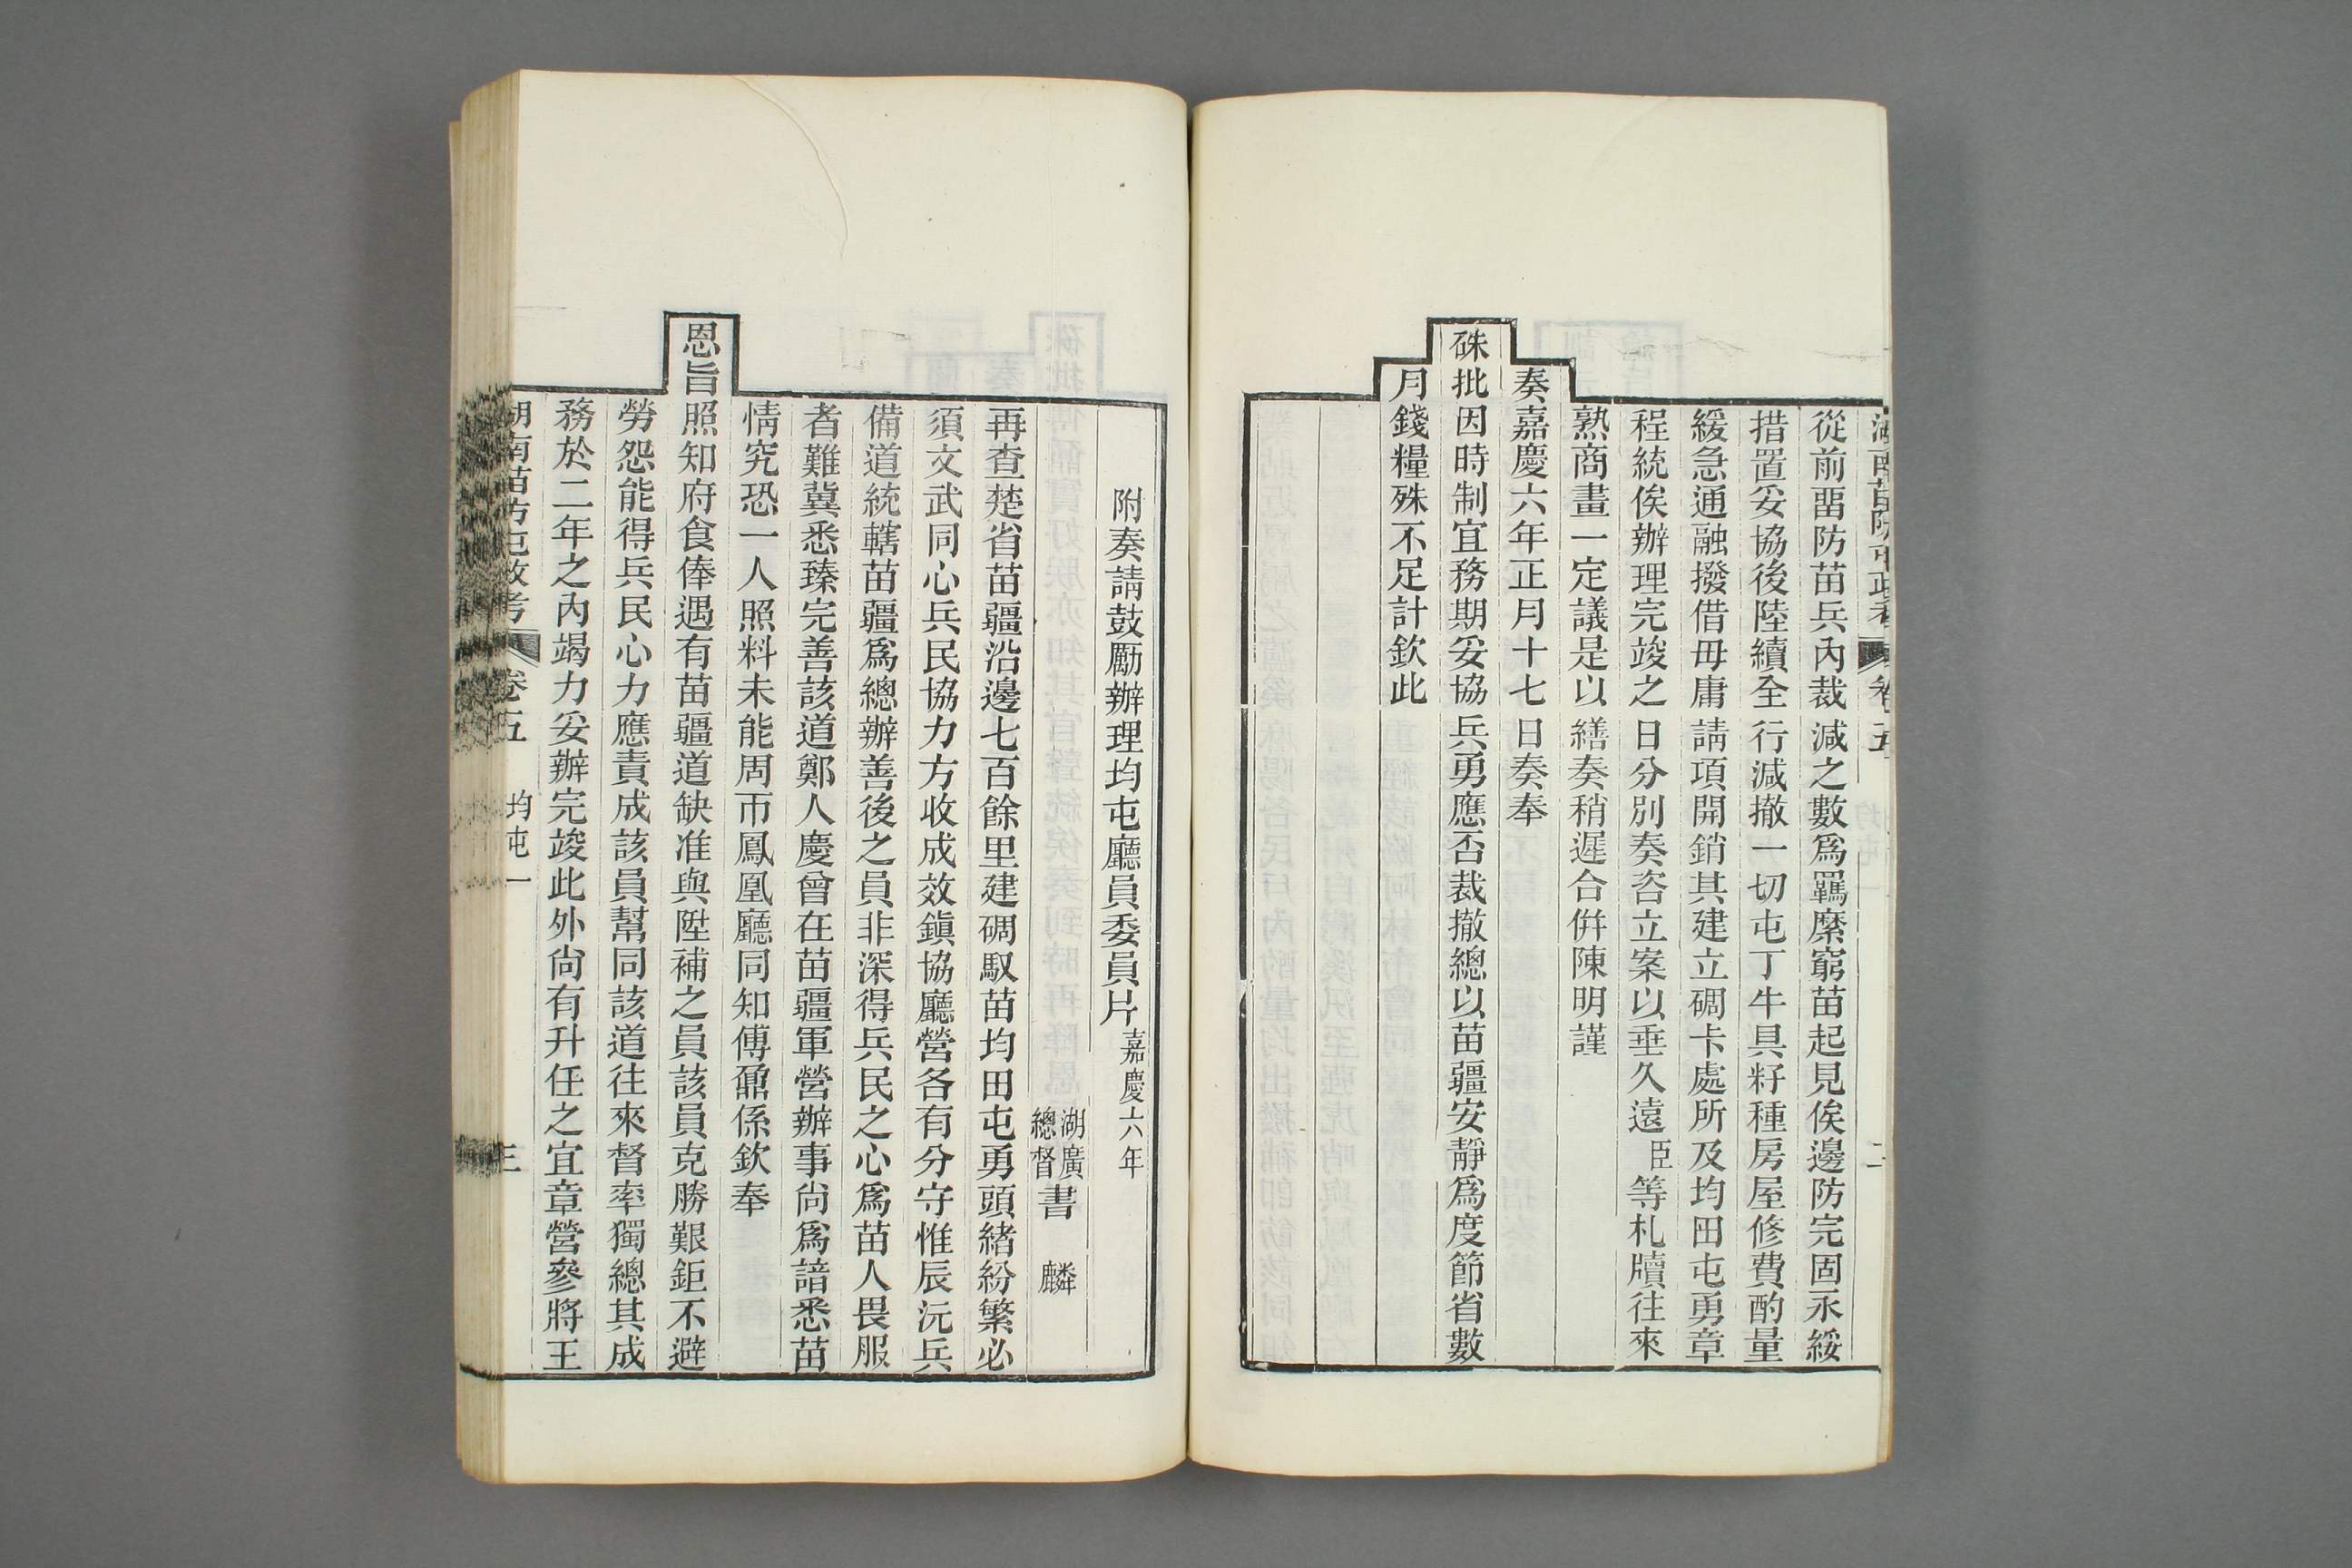 湖南苗防屯政考 卷五 二
從前畱防苗兵內裁減之數爲羈縻窮苗起見俟邊防完固永綏
措置妥協後陸續全行減撤一切屯丁牛具籽種房屋修費酌量
緩急通融撥借毋庸請項開銷其建立碉卡處所及均田屯勇章
程統俟辦理完竣之日分別奏咨立案以垂久遠臣等札牘往來
熟商畫一定議是以繕奏稍遲合併陳明謹
奏嘉慶六年正月十七日奏奉
硃批因時制宜務期妥協兵勇應否裁撤總以苗疆安靜爲度節省數
月錢糧殊不足計欽此
附奏請鼓勵辦理均屯廳員委員片嘉慶六年
湖廣總督書 麟
再查楚省苗疆沿邊七百餘里建碉馭苗均田屯勇頭緖紛繁必
須文武同心兵民協力方收成效鎭協廳營各有分守惟辰沅兵
備道統轄苗疆爲總辦善後之員非深得兵民之心爲苗人畏服
者難冀悉臻完善該道鄭人慶曾在苗疆軍營辦事尙爲諳悉苗
情究恐一人照料未能周帀鳳凰廳同知傅鼐係欽奉
恩旨照知府食俸遇有苗疆道缺准與陞補之員該員克勝艱鉅不避
勞怨能得兵民心力應責成該員幫同該道往來督率獨總其成
務於二年之內竭力妥辦完竣此外尙有升任之宜章營參將王
湖南苗防屯政考 卷五 均屯一 三